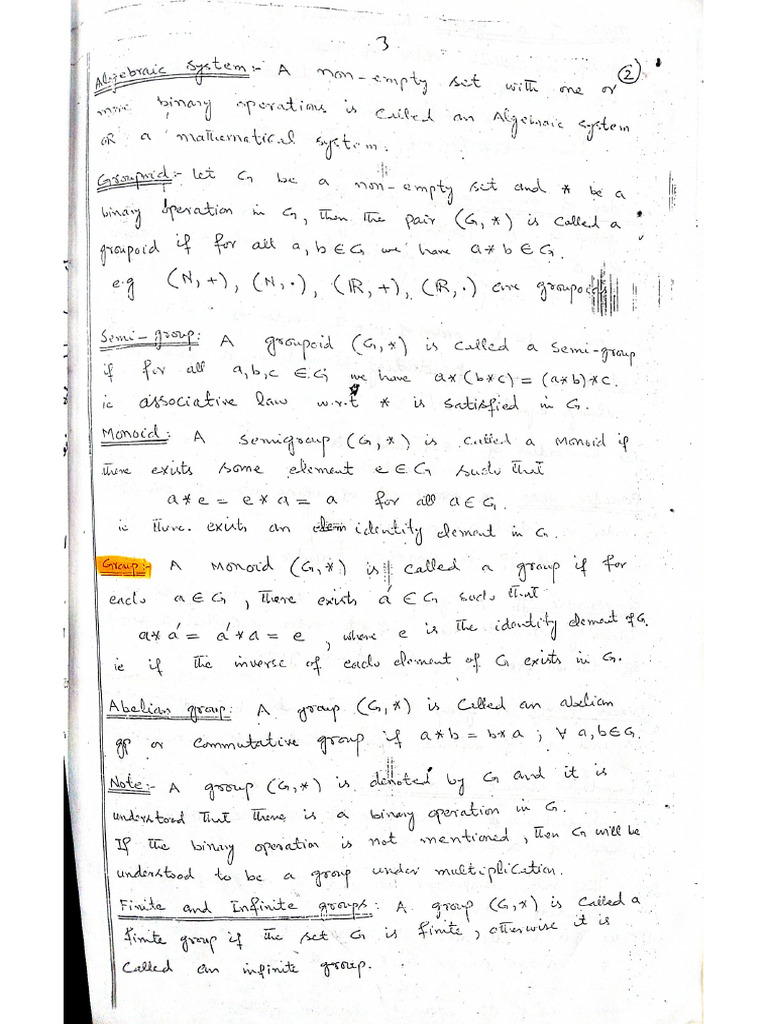 3
Algebraic system:- A non-empty set with one or (2)
more binary operations is called an Algebraic system
OR a mathematical system.
Groupoid:- Let G be a non-empty set and * be a
binary operation in G, then the pair (G, *) is called a
groupoid if for all a, b ∈ G we have a * b ∈ G.
e.g (N, +), (N, ·), (ℝ, +), (ℝ, ·) are groupoids
Semi-group: A groupoid (G, *) is called a semi-group
if for all a, b, c ∈ G we have a * (b * c) = (a * b) * c.
ie associative law w.r.t * is satisfied in G.
Monoid: A semigroup (G, *) is called a Monoid if
there exists some element e ∈ G such that
a * e = e * a = a for all a ∈ G.
ie there exists an identity element in G.
Group:- A Monoid (G, *) is called a group if for
each a ∈ G, there exists a' ∈ G such that
a * a' = a' * a = e, where e is the identity element of G.
ie if the inverse of each element of G exists in G.
Abelian group: A group (G, *) is called an abelian
gp or commutative group if a * b = b * a ; ∀ a, b ∈ G.
Note:- A group (G, *) is denoted by G and it is
understood that there is a binary operation in G.
If the binary operation is not mentioned, then G will be
understood to be a group under multiplication.
Finite and Infinite groups: A group (G, *) is called a
finite group if the set G is finite, otherwise it is
called an infinite group.